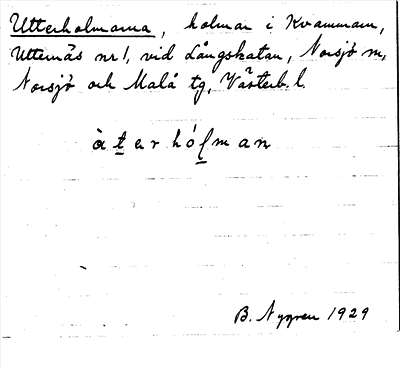 Utterholmarna, holmar i Kvammarn,
Utternäs nr 1, vid Långskatan, Norsjö sn,
Norsjö och Malå tg, Västerb. l.
àt̲erhól̲man
B. Nygren 1929